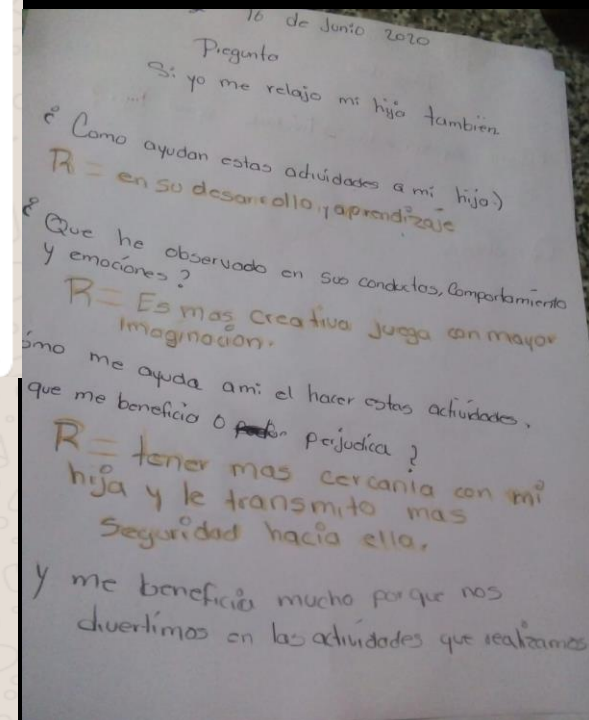 16 de Junio 2020
Pregunta
Si yo me relajo mi hijo también
¿ Como ayudan estas actividades a mi hijo?
R= en su desarrollo, y aprendizaje
¿ Que he observado en sus conductas, Comportamiento
y emociones?
R= Es mas creativa juega con mayor
imaginación.
ómo me ayuda ami el hacer estas actividades.
que me beneficia o perjudica?
R= tener mas cercania con mi
hija y le transmito mas
seguridad hacia ella.
y me beneficia mucho porque nos
divertimos en las actividades que realizamos